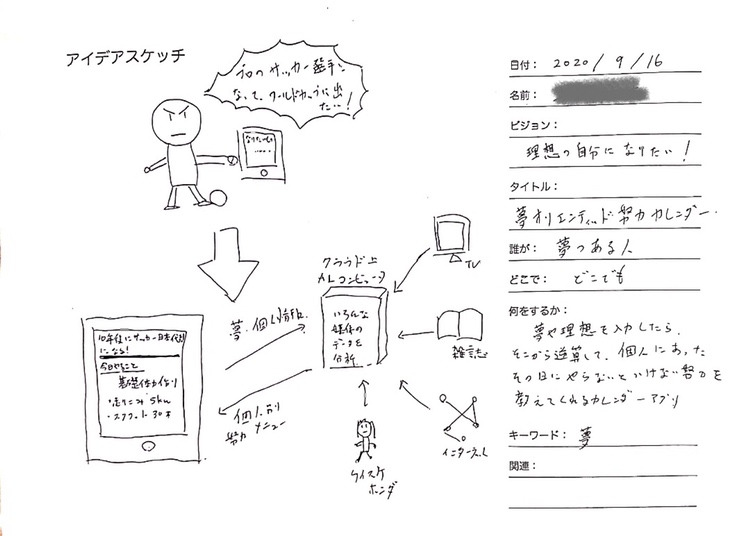 アイデアスケッチ
プロのサッカー選手に
なって、ワールドカップに出
たい!
なりたいもの
.....
クラウド上
AIコンピュータ
いろんな
媒体の
データを
分析
TV
雑誌
インターネット
ケイスケ
ホンダ
夢・個人情報
個人別
努力メニュー
10年後にサッカー日本代表
になる!
今日やること
基礎体力作り
・走りこみ 5km
・スクワット 30本
日付: 2020/9/16
名前:
ビジョン:
理想の自分になりたい!
タイトル:
夢オリエンティッド努力カレンダー
誰が: 夢のある人
どこで: どこでも
何をするか:
夢や理想を入力したら、
そこから逆算して、個人にあった
その日にやらないといけない努力を
教えてくれるカレンダーアプリ
キーワード: 夢
関連: